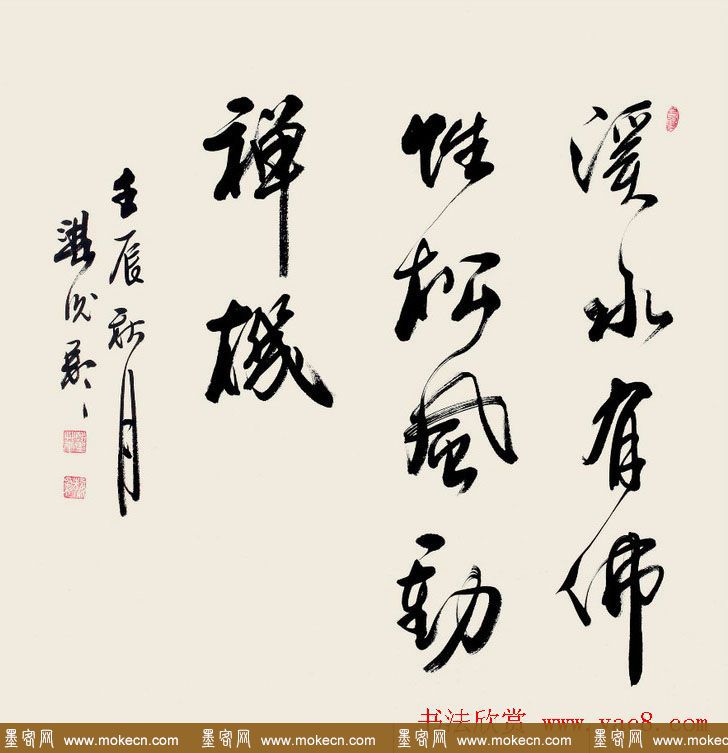 溪水有佛
性松风動
禅機
壬辰秋月
书法欣赏 www.yac8.com
墨客网 www.mokecn.com 墨客网 www.mokecn.com 墨客网 www.mokecn.com 墨客网 www.mokecn.com